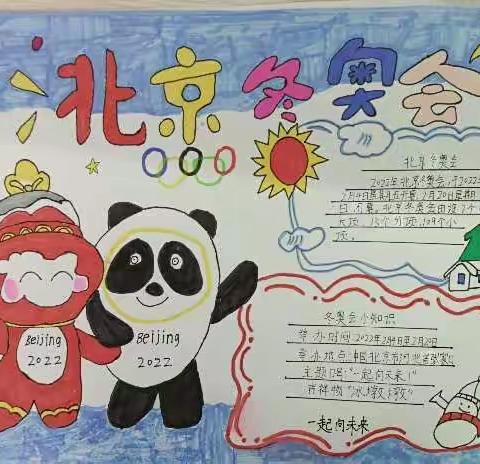 北京冬奥会
北京冬奥会
2022年北京冬奥会,于2022
2月4日星期五开幕,2月20日星期
日闭幕,北京冬奥会由设7个
大项,15个分项,109个小
项。
Beijing
2022
Beijing
2022
冬奥会小知识
举办时间:2022年2月4日至2月20日
举办地点:中国北京市河北省张家口
主题口号:"一起向未来!"
吉祥物"冰墩墩"
一起向未来